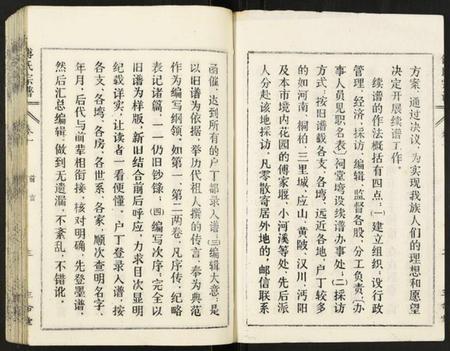 方案，通过决议，为实现我族人们的理想和愿望
决定开展续谱工作。
续谱的作法概括有四点：㈠建立组织，设行政
管理，经济，采访，编辑，监督各股，分工负责（办
事人员见职名表）祠堂塆设续谱办事处；㈡採访
方式，按旧谱载各支，各塆，远近各地，户丁较多
的如河南，桐柏，三里城，应山，黄陂，汉川，沔阳
及本市境内花园的傅家堰，小河溪等处，先后派
人分赴该地採访，凡零散寄居外地的，邮信联系
函催，达到所有的户丁都录入谱，㈢编辑大意，是
以旧谱为依据，举历代祖人撰的传言，奉为典范
作为编写纲领，如第一第二两卷，凡序传，纪略
表记诸篇，一一仍旧钞錄；㈣编写次序，完全以
旧谱为样版，新旧结合前后呼应，力求目次显明
纪载详实，让读者一看便懂，户丁登录入谱，按
各支，各塆，各房，各世系，各家，顺次查明名字，
年月，后代与前辈相衔接，核对明确，先登墨谱，
然后汇总编辑，做到无遗漏，不紊乱，不错讹。
氏宗谱
卷一
前言
三